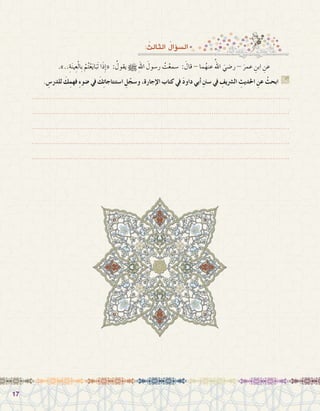 السؤال الثالث
عنِ ابنِ عمرَ – رضيَ اللهُ عنهُما – قالَ: سمعْتُ رسولَ اللهِ ﷺ يقولُ: «إِذَا تَبَايَعْتُمْ بِالْعِينَةِ..».
ابحثْ عنِ الحديثِ الشريفِ في سننِ أبي داودَ في كتابِ الإجارةِ، وسجّلِ استنتاجاتِكَ في ضوءِ فهمِكَ للدرسِ.
17